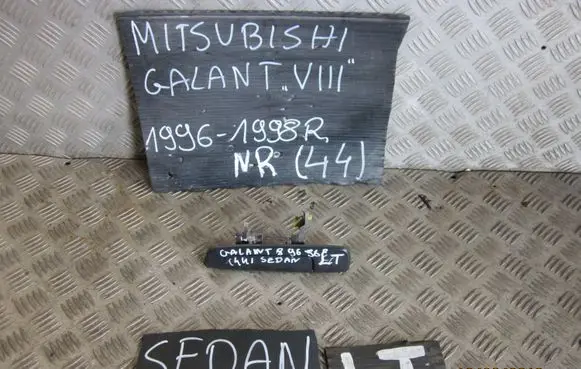 MITSUBISHI
GALANT „VIII"
1996-1998R
N.R° (44)
GALANT 8 96-98R
(44) SEDAN LT
SEDAN LT